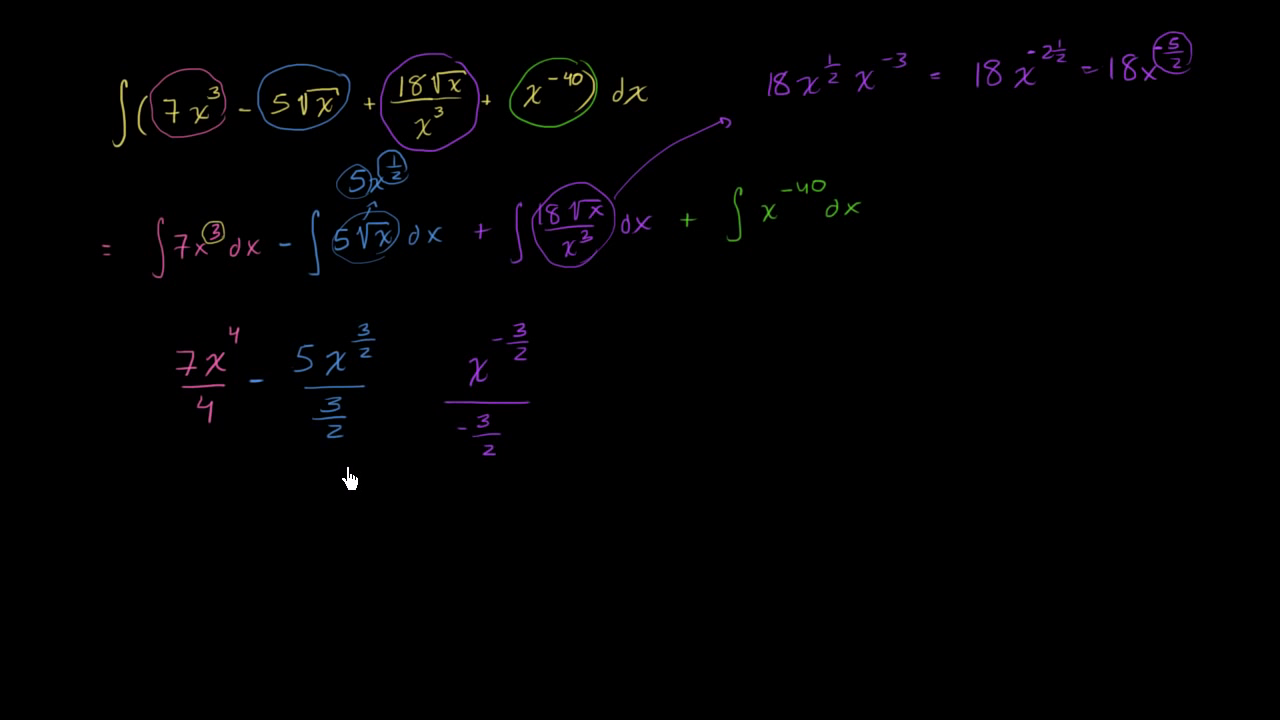 ∫(7x³ - 5√x + 18√x/x³ + x⁻⁴⁰) dx
18x^(1/2) x⁻³ = 18x^(-2 1/2) = 18x^(-5/2)
5x^(1/2)
= ∫7x³dx - ∫5√x dx + ∫18√x/x³ dx + ∫x⁻⁴⁰dx
7x⁴/4 - 5x^(3/2)/(3/2) x^(-3/2)/(-3/2)